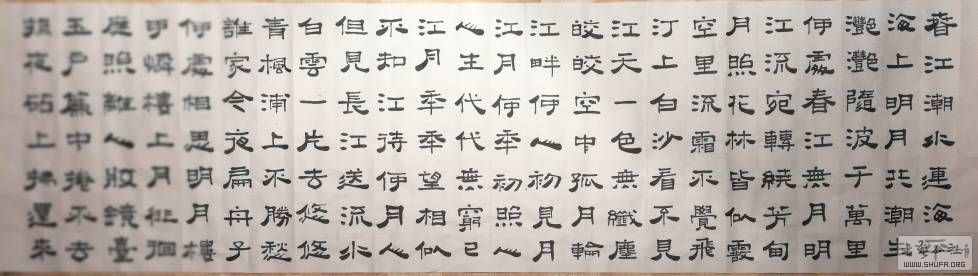 春江潮水連海
海上明月共潮生
灩灩隨波千萬里
何處春江無月明
江流宛轉繞芳甸
月照花林皆似霰
空里流霜不覺飛
汀上白沙看不見
江天一色無纖塵
皎皎空中孤月輪
江畔何人初見月
江月何年初照人
人生代代無窮已
江月年年望相似
不知江待何月人
但見長江送流水
白雲一片去悠悠
青楓浦上不勝愁
誰家今夜扁舟子
何處相思明月樓
可憐樓上月徘徊
應照離人妝鏡臺
玉戶簾中捲不去
搗衣砧上拂還來
WWW.SHUFA.ORG